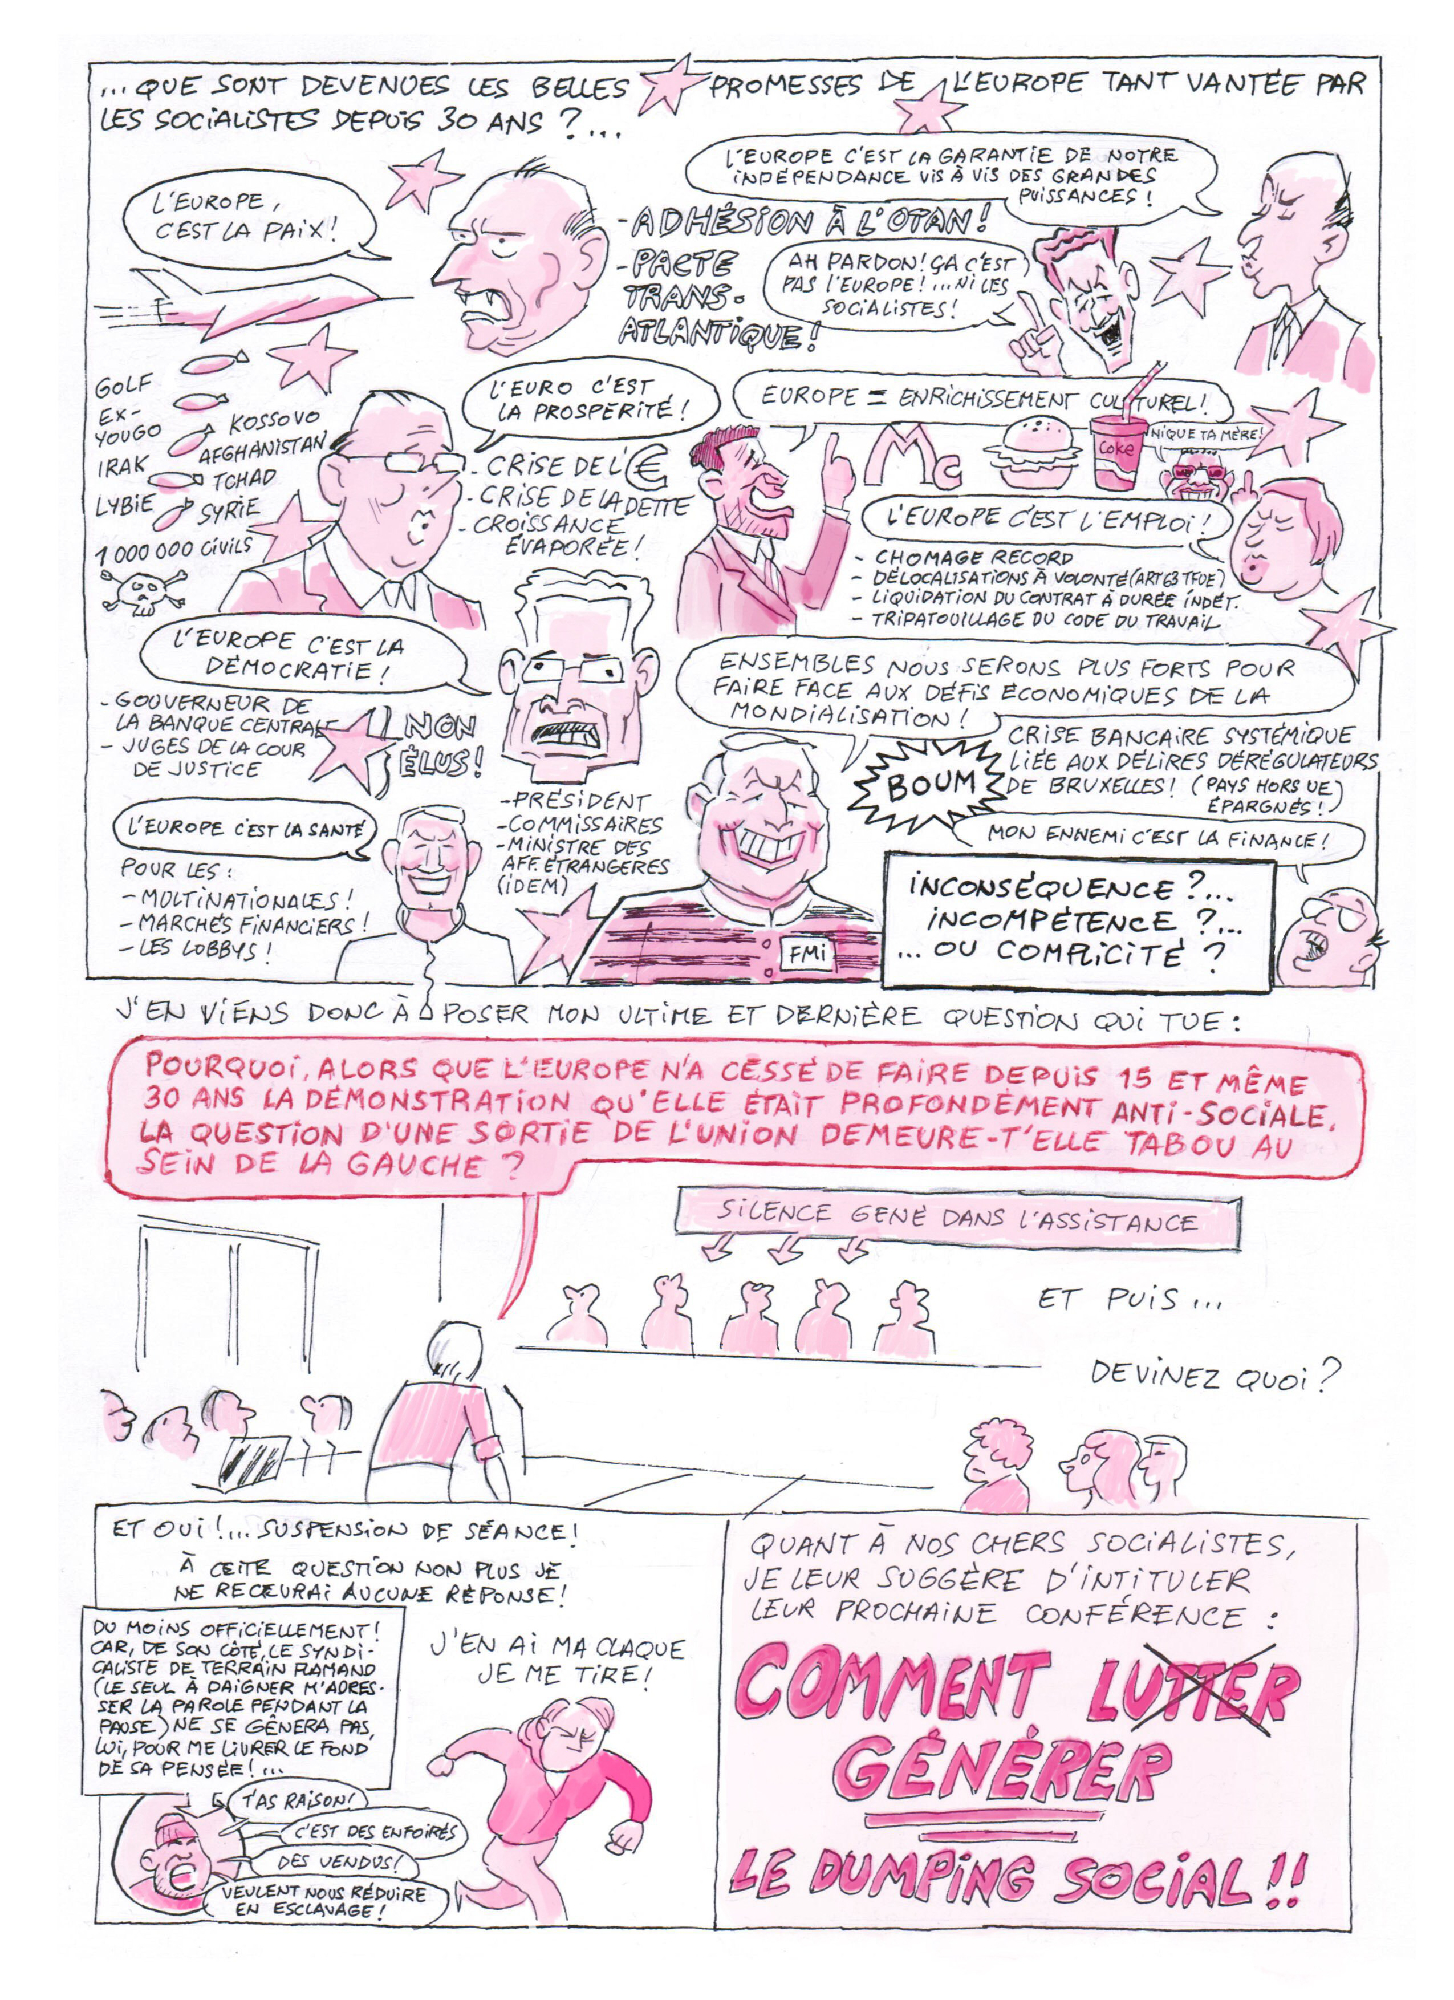 ... QUE SONT DEVENUES LES BELLES PROMESSES DE L'EUROPE TANT VANTÉE PAR
LES SOCIALISTES DEPUIS 30 ANS ?...
L'EUROPE,
C'EST LA PAIX !
L'EUROPE C'EST LA GARANTIE DE NOTRE
INDÉPENDANCE VIS À VIS DES GRANDES
PUISSANCES !
- ADHÉSION À L'OTAN !
- PACTE
TRANS-
ATLANTIQUE !
AH PARDON ! ÇA C'EST
PAS L'EUROPE ! ... NI LES
SOCIALISTES !
GOLF
EX-
YOUGO
IRAK
LYBIE
KOSSOVO
AFGHANISTAN
TCHAD
SYRIE
1 000 000 CIVILS
L'EURO C'EST
LA PROSPÉRITÉ !
- CRISE DE L'€
- CRISE DE LA DETTE
- CROISSANCE
ÉVAPORÉE !
EUROPE = ENRICHISSEMENT CULTUREL !
Mc
Coke
NIQUE TA MÈRE !
L'EUROPE C'EST L'EMPLOI !
- CHOMAGE RECORD
- DÉLOCALISATIONS À VOLONTÉ (ART 63 TFUE)
- LIQUIDATION DU CONTRAT À DURÉE INDÉT.
- TRIPATOUILLAGE DU CODE DU TRAVAIL
L'EUROPE C'EST LA
DÉMOCRATIE !
- GOUVERNEUR DE
LA BANQUE CENTRALE
- JUGES DE LA COUR
DE JUSTICE
NON
ÉLUS !
- PRÉSIDENT
- COMMISSAIRES
- MINISTRE DES
AFF. ÉTRANGÈRES
(IDEM)
ENSEMBLES NOUS SERONS PLUS FORTS POUR
FAIRE FACE AUX DÉFIS ÉCONOMIQUES DE LA
MONDIALISATION !
BOUM
CRISE BANCAIRE SYSTÉMIQUE
LIÉE AUX DÉLIRES DÉRÉGULATEURS
DE BRUXELLES ! (PAYS HORS UE)
ÉPARGNÉS !)
L'EUROPE C'EST LA SANTÉ
POUR LES :
- MULTINATIONALES !
- MARCHÉS FINANCIERS !
- LES LOBBYS !
FMI
MON ENNEMI C'EST LA FINANCE !
INCONSÉQUENCE ?...
INCOMPÉTENCE ?...
... OU COMPLICITÉ ?
J'EN VIENS DONC À POSER MON ULTIME ET DERNIÈRE QUESTION QUI TUE :
POURQUOI, ALORS QUE L'EUROPE N'A CESSÉ DE FAIRE DEPUIS 15 ET MÊME
30 ANS LA DÉMONSTRATION QU'ELLE ÉTAIT PROFONDÉMENT ANTI-SOCIALE,
LA QUESTION D'UNE SORTIE DE L'UNION DEMEURE-T'ELLE TABOU AU
SEIN DE LA GAUCHE ?
SILENCE GÊNÉ DANS L'ASSISTANCE
ET PUIS ...
DEVINEZ QUOI ?
ET OUI ! ... SUSPENSION DE SÉANCE !
À CETTE QUESTION NON PLUS JE
NE RECEVRAI AUCUNE RÉPONSE !
DU MOINS OFFICIELLEMENT !
CAR, DE SON CÔTÉ, LE SYNDI-
CALISTE DE TERRAIN FLAMAND
(LE SEUL À DAIGNER M'ADRES-
SER LA PAROLE PENDANT LA
PAUSE) NE SE GÊNERA PAS,
LUI, POUR ME LIVRER LE FOND
DE SA PENSÉE ! ...
T'AS RAISON !
C'EST DES ENFOIRÉS
DES VENDUS !
VEULENT NOUS RÉDUIRE
EN ESCLAVAGE !
J'EN AI MA CLAQUE
JE ME TIRE !
QUANT À NOS CHERS SOCIALISTES,
JE LEUR SUGGÈRE D'INTITULER
LEUR PROCHAINE CONFÉRENCE :
COMMENT LUTTER
GÉNÉRER
LE DUMPING SOCIAL !!